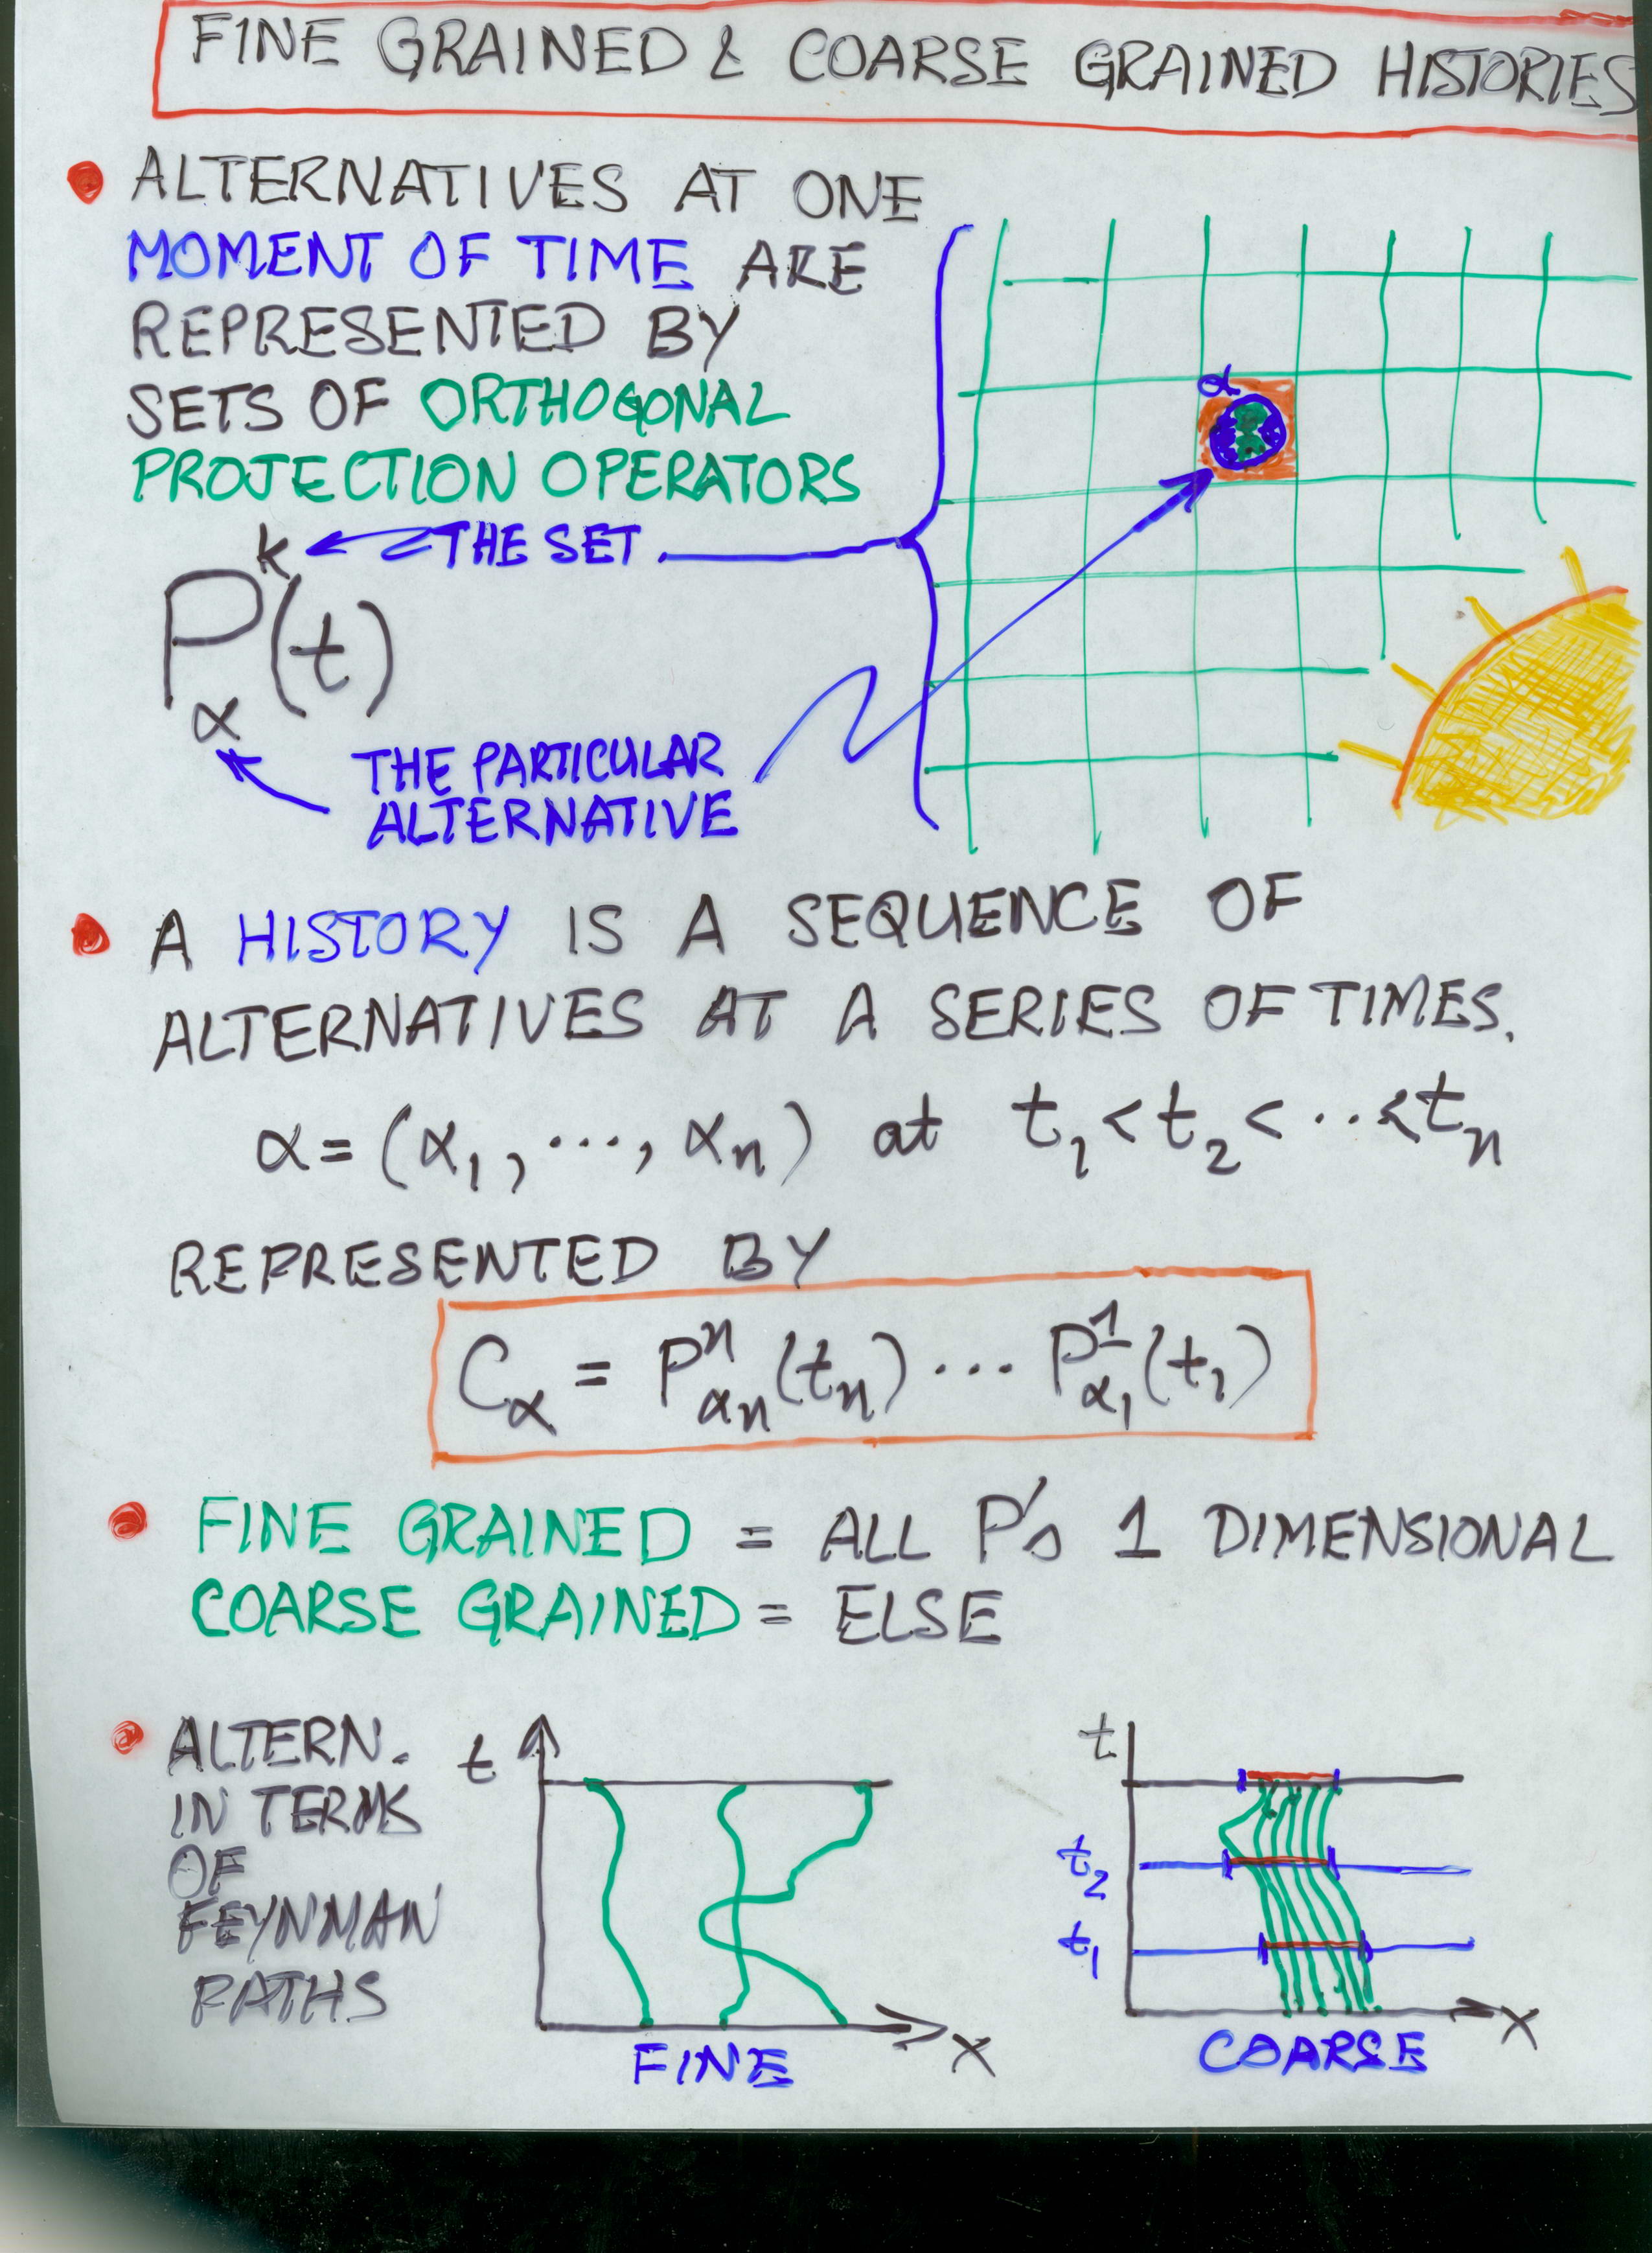 FINE GRAINED & COARSE GRAINED HISTORIES
• ALTERNATIVES AT ONE
MOMENT OF TIME ARE
REPRESENTED BY
SETS OF ORTHOGONAL
PROJECTION OPERATORS
α
k ← THE SET
P(t)
α
THE PARTICULAR
ALTERNATIVE
• A HISTORY IS A SEQUENCE OF
ALTERNATIVES AT A SERIES OF TIMES.
α = (α₁, ..., αₙ) at t₁ < t₂ < ... < tₙ
REPRESENTED BY
Cα = Pⁿαₙ(tₙ) ... P¹α₁(t₁)
• FINE GRAINED = ALL P's 1 DIMENSIONAL
COARSE GRAINED = ELSE
• ALTERN.
IN TERMS
OF
FEYNMAN
PATHS
t
x
FINE
t
t₂
t₁
x
COARSE